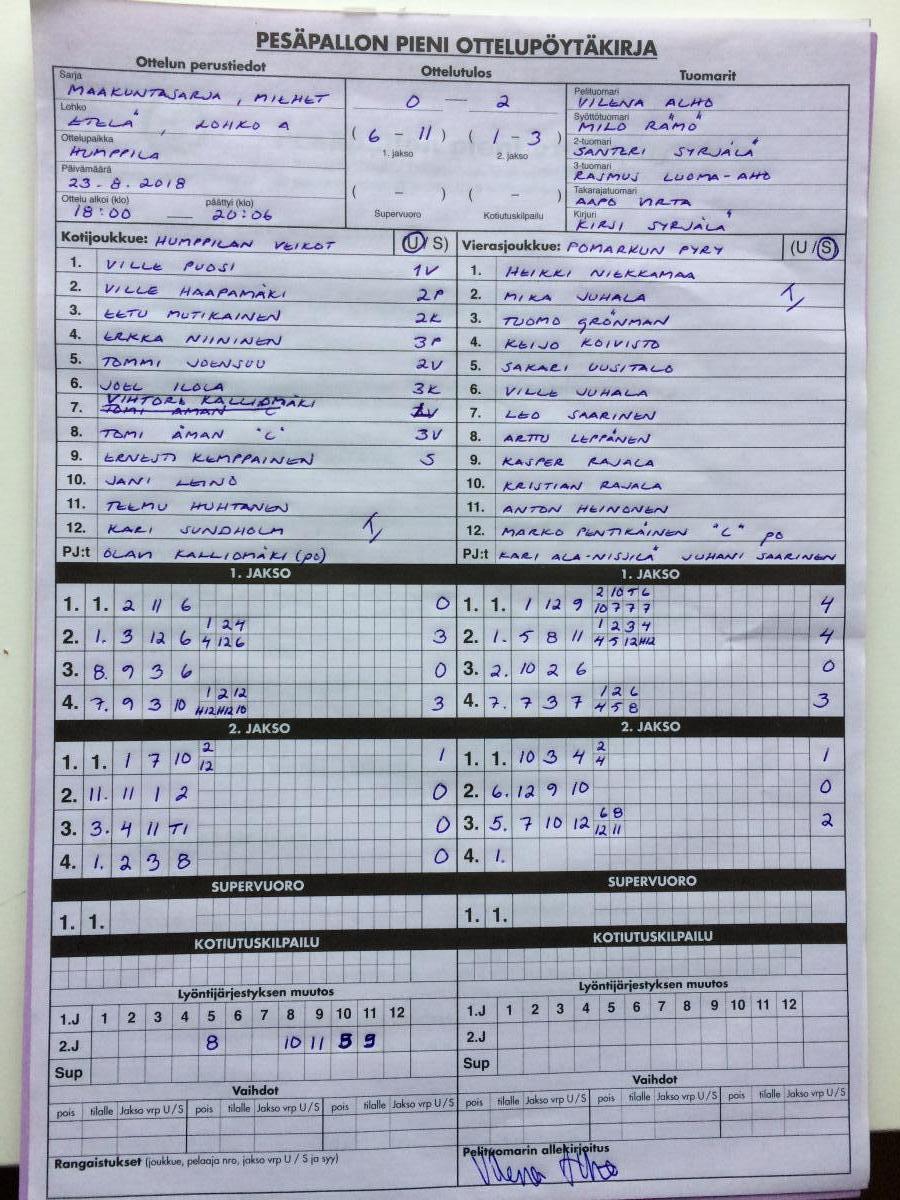 PESÄPALLON PIENI OTTELUPÖYTÄKIRJA
Ottelun perustiedot Ottelutulos Tuomarit
Sarja
MAAKUNTASARJA, MIEHET
Lohko
ETELÄ, LOHKO A
Ottelupaikka
HUMPPILA
Päivämäärä
23.8.2018
Ottelu alkoi (klo) päättyi (klo)
18:00 — 20:06
0 — 2
( 6 - 11 ) ( 1 - 3 )
1. jakso 2. jakso
( - ) ( - )
Supervuoro Kotiutuskilpailu
Pelituomari
VILENA ALHO
Syöttötuomari
MILO RÄMÖ
2-tuomari
SANTERI SYRJÄLÄ
3-tuomari
RASMUS LUOMA-AHO
Takarajatuomari
AAPO VIRTA
Kirjuri
KIRSI SYRJÄLÄ
Kotijoukkue: HUMPPILAN VEIKOT (U/S)
1. VILLE PUOSI 1V
2. VILLE HAAPAMÄKI 2P
3. EETU MUTIKAINEN 2K
4. ERKKA NIININEN 3P
5. TOMMI JOENSUU 2V
6. JOEL ILOLA 3K
7. VIHTORI KALLIOMÄKI
TOMI ÄMAN "C"
8. TOMI ÄMAN "C" 3V
9. ERNESTI KEMPPAINEN S
10. JANI LEINO
11. TEEMU HUHTANEN
12. KARI SUNDHOLM
PJ:t OLAVI KALLIOMÄKI (po)
Vierasjoukkue: POMARKUN PYRY (U/S)
1. HEIKKI NIEKKAMAA
2. MIKA JUHALA
3. TUOMO GRÖNMAN
4. KEIJO KOIVISTO
5. SAKARI UUSITALO
6. VILLE JUHALA
7. LEO SAARINEN
8. ARTTU LEPPÄNEN
9. KASPER RAJALA
10. KRISTIAN RAJALA
11. ANTON HEINONEN
12. MARKO PENTIKÄINEN "C" po
PJ:t KARI ALA-NISSILÄ JUHANI SAARINEN
1. JAKSO
1. 1. 2 11 6 0
2. 1. 3 12 6 1 2 4 3
4 12 6
3. 8. 9 3 6 0
4. 7. 9 3 10 1 2 12 3
H12 H12 10
1. JAKSO
1. 1. 1 12 9 2 10 5 6 4
10 7 7 7
2. 1. 5 8 11 1 2 3 4 4
4 5 12 H12
3. 2. 10 2 6 0
4. 7. 7 3 7 1 2 6 3
4 5 8
2. JAKSO
1. 1. 1 7 10 2 1
12
2. 11. 11 1 2 0
3. 3. 4 11 T1 0
4. 1. 2 3 8 0
2. JAKSO
1. 1. 10 3 4 2 1
4
2. 6. 12 9 10 0
3. 5. 7 10 12 6 8 2
12 11
4. 1.
SUPERVUORO
1. 1.
SUPERVUORO
1. 1.
KOTIUTUSKILPAILU
KOTIUTUSKILPAILU
Lyöntijärjestyksen muutos
1.J 1 2 3 4 5 6 7 8 9 10 11 12
2.J 8 10 11 5 9
Sup
Lyöntijärjestyksen muutos
1.J 1 2 3 4 5 6 7 8 9 10 11 12
2.J
Sup
Vaihdot
pois tilalle Jakso vrp U / S pois tilalle Jakso vrp U / S pois tilalle Jakso vrp U / S
Vaihdot
pois tilalle Jakso vrp U / S pois tilalle Jakso vrp U / S pois tilalle Jakso vrp U / S
Rangaistukset (joukkue, pelaaja nro, jakso vrp U / S ja syy)
Pelituomarin allekirjoitus
Vilena Alho